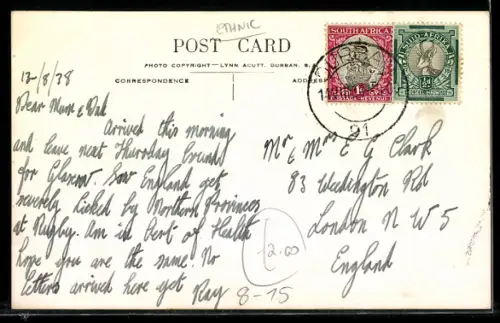 ETHNIC
POST CARD
PHOTO COPYRIGHT — LYNN ACUTT, DURBAN, S.A.
CORRESPONDENCE
ADDRESS
SOUTH AFRICA
1D
POSTAGE-REVENUE
SUID-AFRIKA
½D
91
13/8/38
Dear Mum & Dad
Arrived this morning
and leave next Thursday bound
for Glasgow. Saw England get
severely licked by Northern Provinces
at Rugby. Am in best of Health
hope you are the same. No
letters arrived here yet
Ray
Mr & Mrs E G Clark
83 Waddington Rd
London N W 5
England
£2.00
8-15